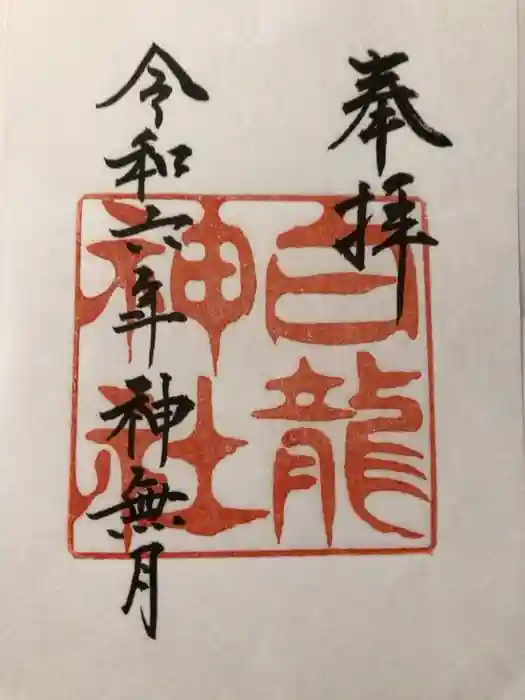 奉拝
白龍
神社
令和六年神無月